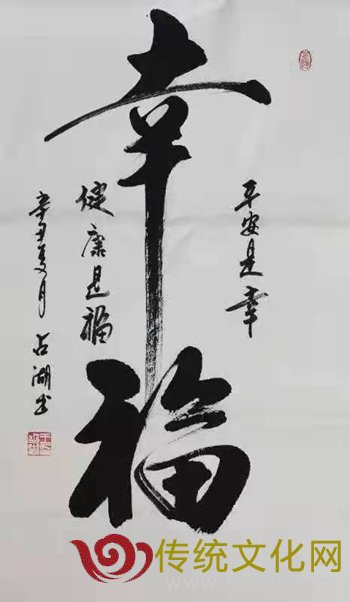 幸福
平安是幸
健康是福
辛丑夏月 占湖书
传统文化网